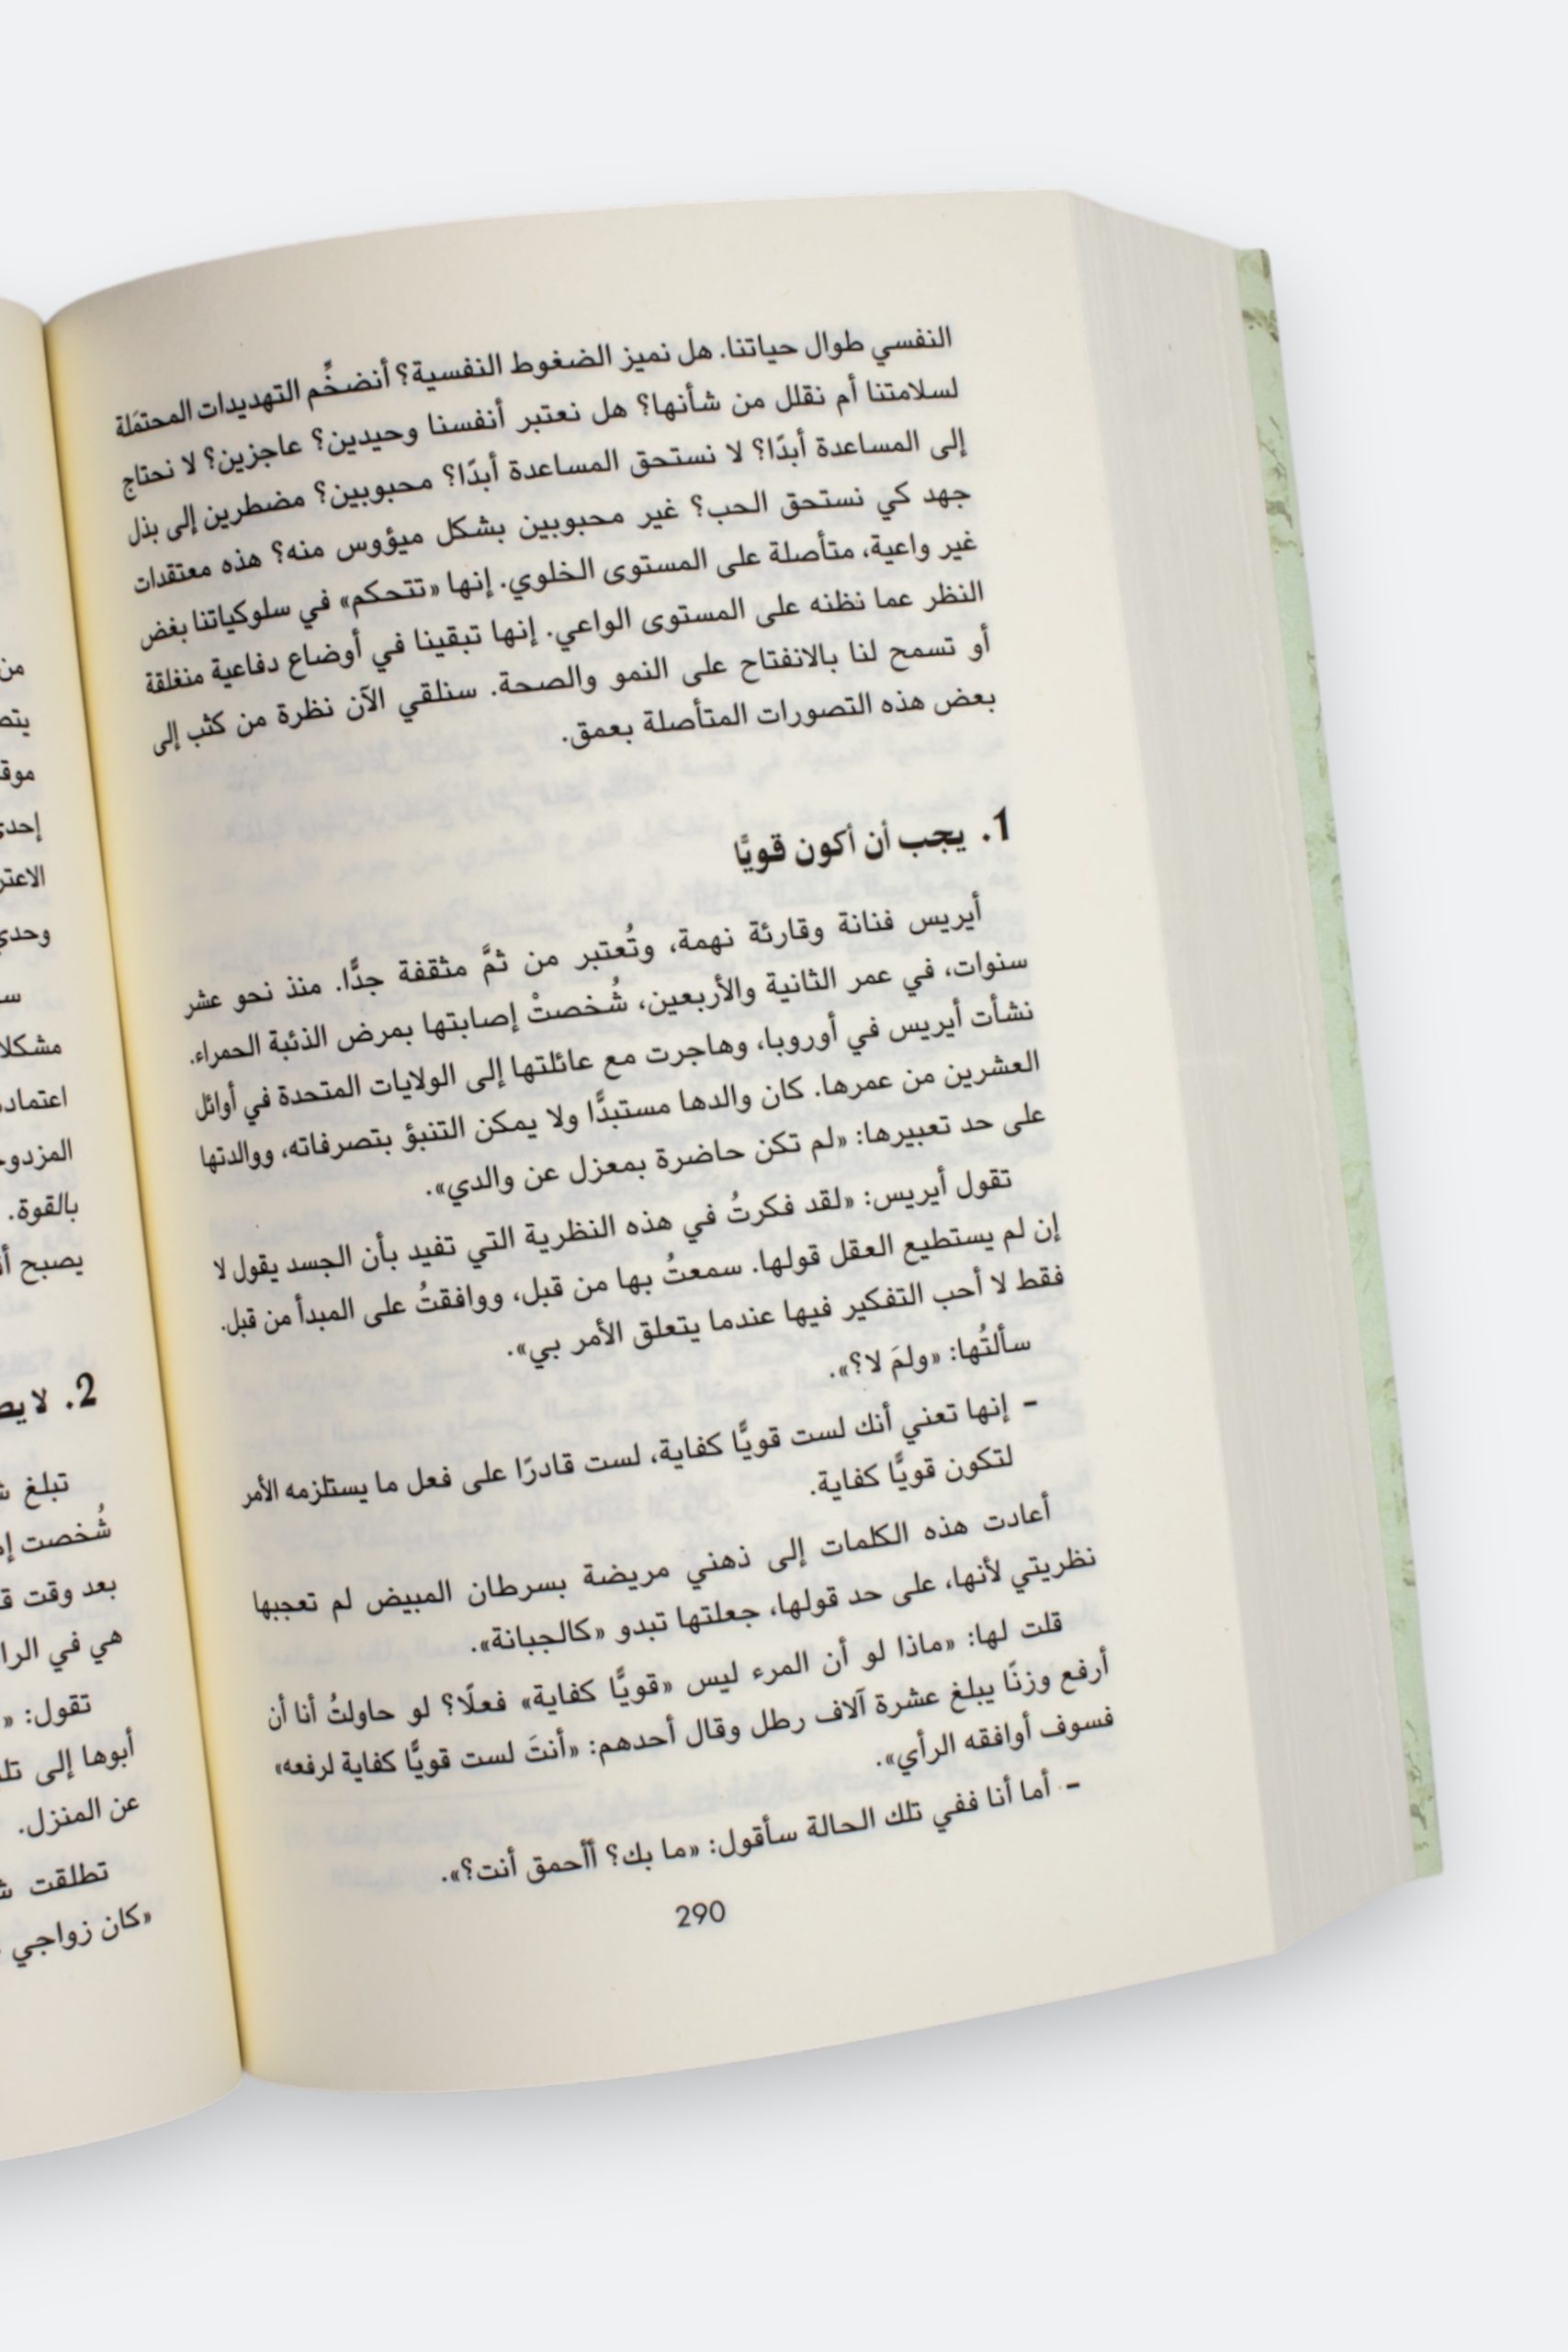 النفسي طوال حياتنا. هل نميز الضغوط النفسية؟ أنضخِّم التهديدات المحتمَلة
لسلامتنا أم نقلل من شأنها؟ هل نعتبر أنفسنا وحيدين؟ عاجزين؟ لا نحتاج
إلى المساعدة أبدًا؟ لا نستحق المساعدة أبدًا؟ محبوبين؟ مضطرين إلى بذل
جهد كي نستحق الحب؟ غير محبوبين بشكل ميؤوس منه؟ هذه معتقدات
غير واعية، متأصلة على المستوى الخلوي. إنها «تتحكم» في سلوكياتنا بغض
النظر عما نظنه على المستوى الواعي. إنها تبقينا في أوضاع دفاعية منغلقة
أو تسمح لنا بالانفتاح على النمو والصحة. سنلقي الآن نظرة من كثب إلى
بعض هذه التصورات المتأصلة بعمق.
1. يجب أن أكون قويًّا
أيريس فنانة وقارئة نهمة، وتُعتبر من ثمَّ مثقفة جدًّا. منذ نحو عشر
سنوات، في عمر الثانية والأربعين، شُخصتْ إصابتها بمرض الذئبة الحمراء.
نشأت أيريس في أوروبا، وهاجرت مع عائلتها إلى الولايات المتحدة في أوائل
العشرين من عمرها. كان والدها مستبدًّا ولا يمكن التنبؤ بتصرفاته، ووالدتها
على حد تعبيرها: «لم تكن حاضرة بمعزل عن والدي».
تقول أيريس: «لقد فكرتُ في هذه النظرية التي تفيد بأن الجسد يقول لا
إن لم يستطيع العقل قولها. سمعتُ بها من قبل، ووافقتُ على المبدأ من قبل.
فقط لا أحب التفكير فيها عندما يتعلق الأمر بي».
سألتُها: «ولمَ لا؟».
- إنها تعني أنك لست قويًّا كفاية، لست قادرًا على فعل ما يستلزمه الأمر
لتكون قويًّا كفاية.
أعادت هذه الكلمات إلى ذهني مريضة بسرطان المبيض لم تعجبها
نظريتي لأنها، على حد قولها، جعلتها تبدو «كالجبانة».
قلت لها: «ماذا لو أن المرء ليس «قويًّا كفاية» فعلًا؟ لو حاولتُ أنا أن
أرفع وزنًا يبلغ عشرة آلاف رطل وقال أحدهم: «أنتَ لست قويًّا كفاية لرفعه»
فسوف أوافقه الرأي».
- أما أنا ففي تلك الحالة سأقول: «ما بك؟ أأحمق أنت؟».
290
من
موق
وحدي
مشكلا
بالقوة.
يصبح
2. لا
تبلغ
شُخصت
بعد وقت
هي في
تقول: «
أبوها إلى
عن المنزل.
تطلقت
«كان زواجي